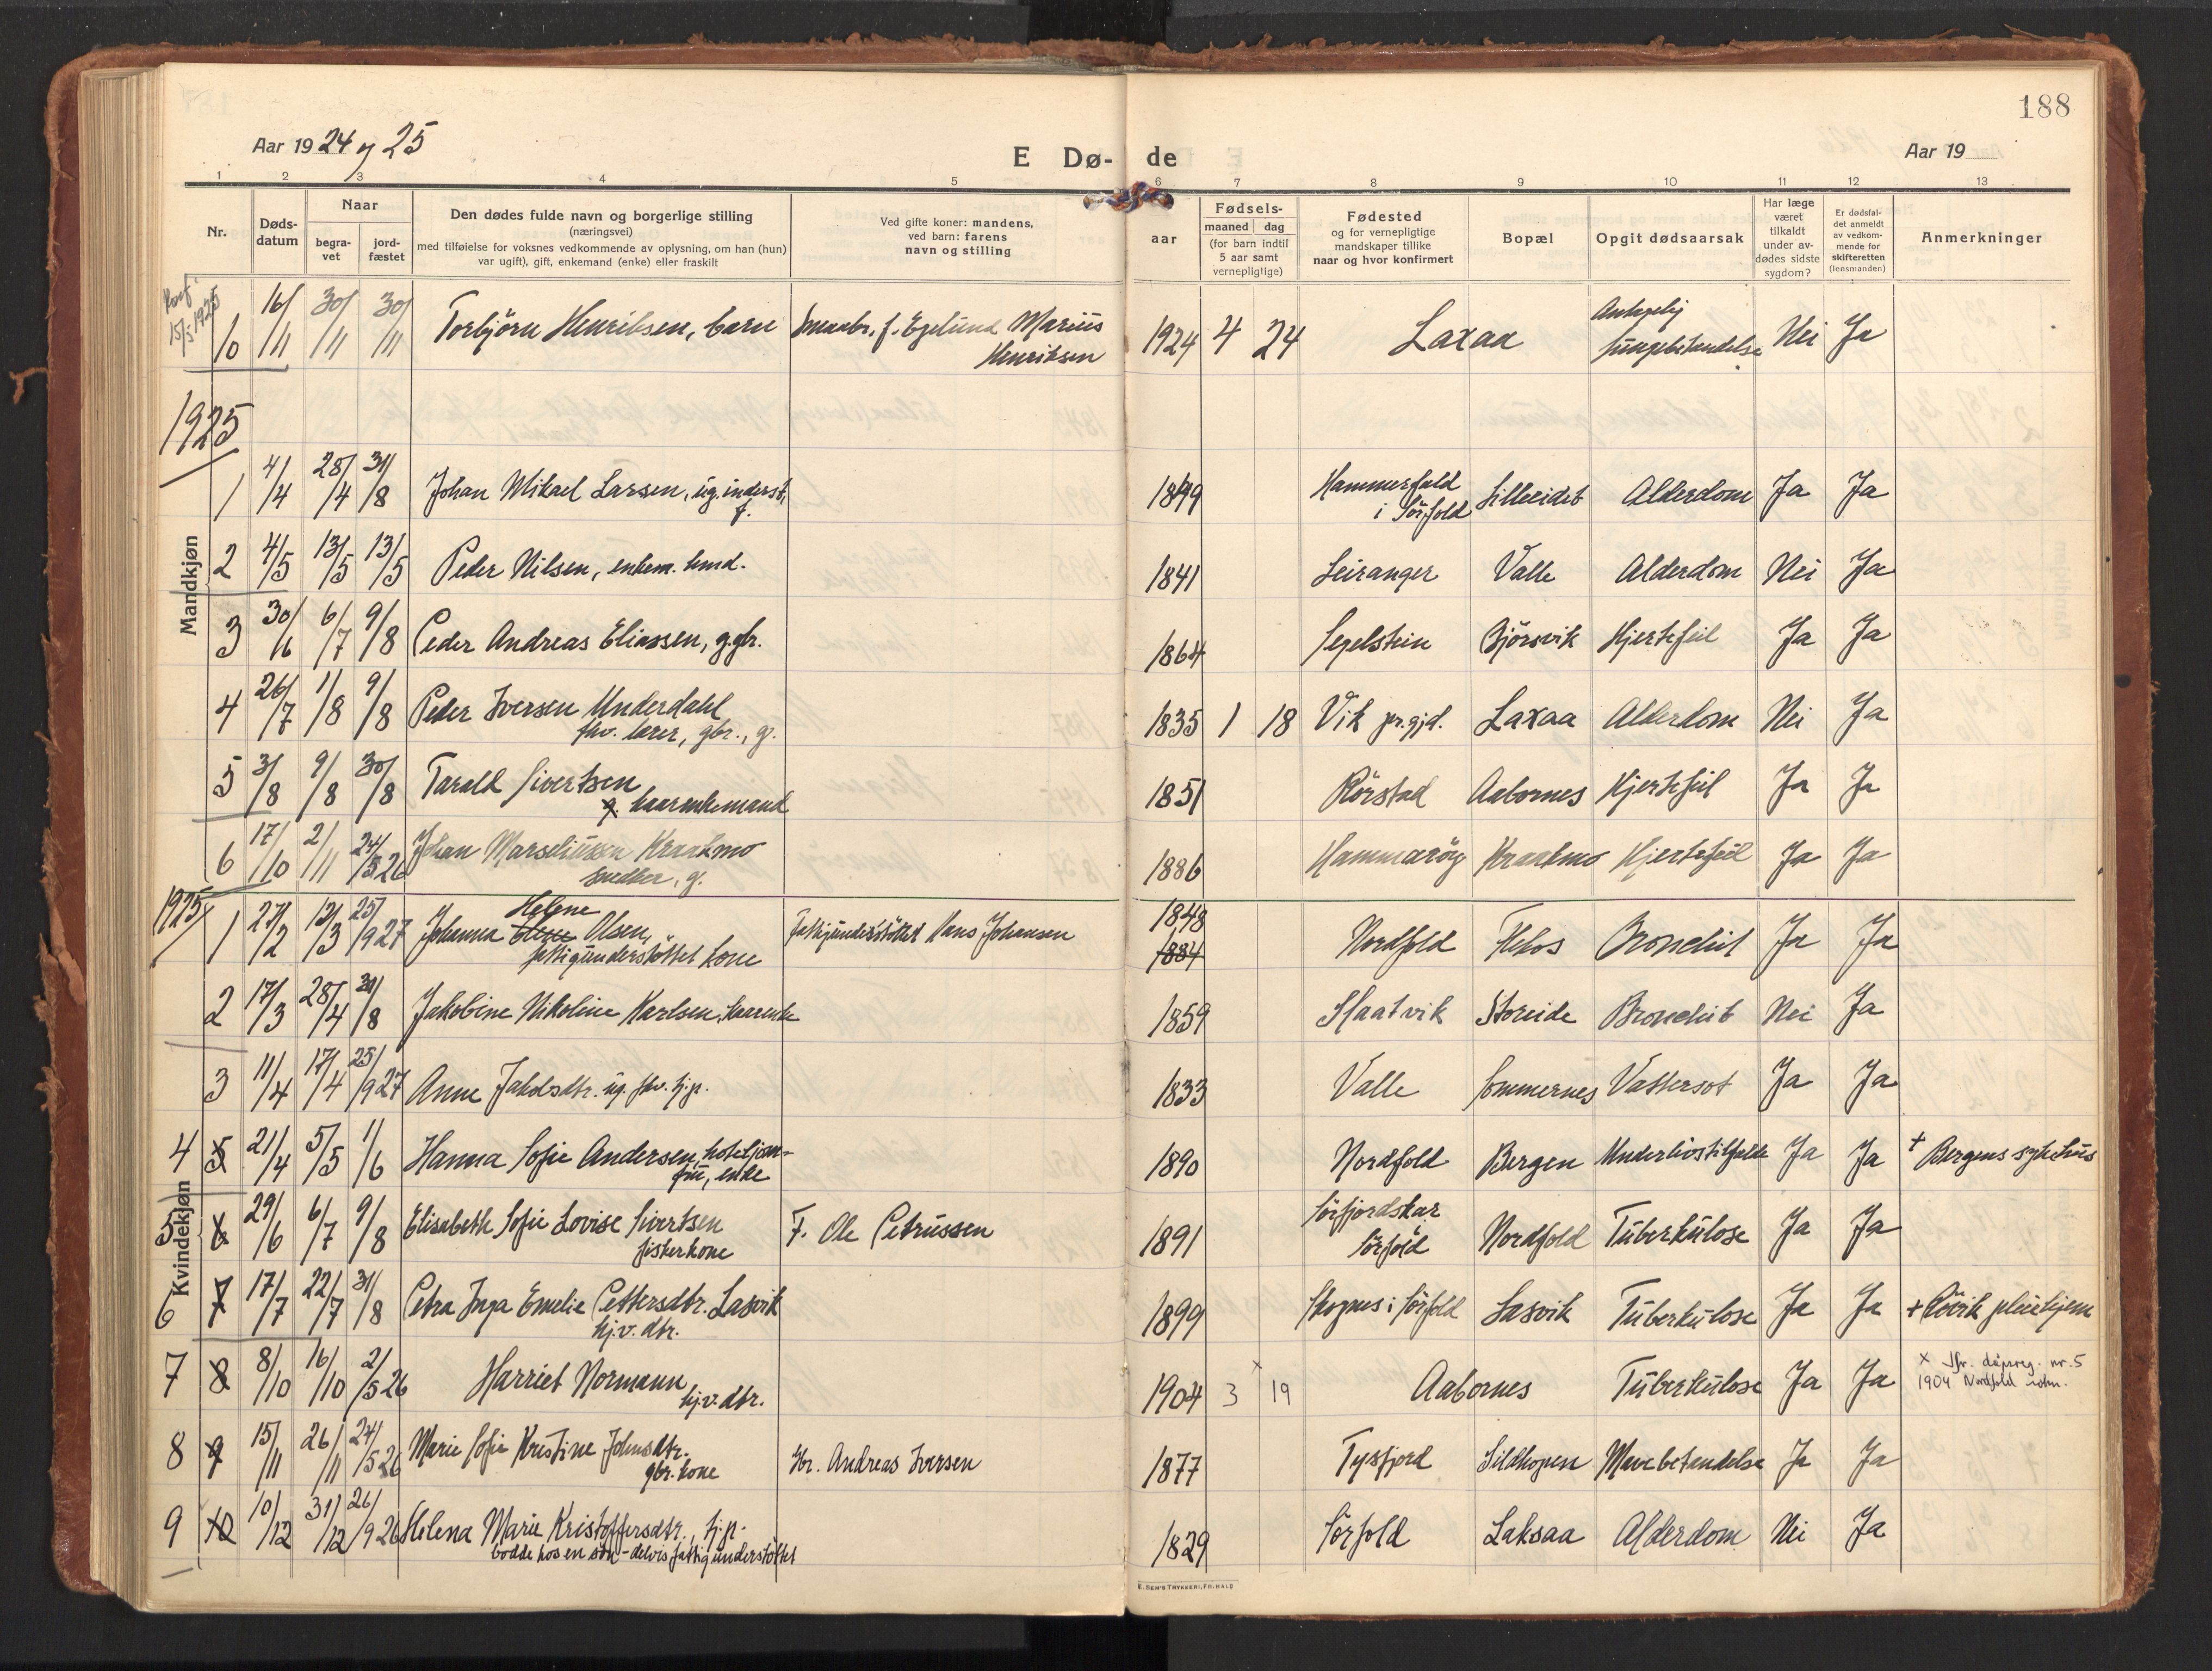 188
Aar 1924 og 25
E Dø- de
Aar 19
1 2 3 4 5 6 7 8 9 10 11 12 13
Nr.
Døds-
datum
Naar
begra-
vet
jord-
fæstet
Den dødes fulde navn og borgerlige stilling
(næringsvei)
med tilføielse for voksnes vedkommende av oplysning, om han (hun)
var ugift), gift, enkemand (enke) eller fraskilt
Ved gifte koner: mandens,
ved barn: farens
navn og stilling
aar
Fødsels-
maaned dag
(for barn indtil
5 aar samt
vernepligtige)
Fødested
og for vernepligtige
mandskaper tillike
naar og hvor konfirmert
Bopæl
Opgit dødsaarsak
Har læge
været
tilkaldt
under av-
dødes sidste
sygdom?
Er dødsfal-
det anmeldt
av vedkom-
mende for
skifteretten
(lensmanden)
Anmerkninger
15/5 1925
10 16/11 30/11 30/11 Torbjørn Henriksen, barn Smaabr. f. Egelund Marius Henriksen 1924 4 24 Laxaa lungebetændelse Nei Ja
1925
Mandkjøn
1 4/4 28/4 31/8 Johan Mikael Larsen, ug. inderst, f. 1849 Hammerfald i Sørfold Lilleeidet Alderdom Ja Ja
2 4/5 13/5 13/5 Peder Nilsen, enkem. kmd. 1841 Leiranger Valle Alderdom Nei Ja
3 30/6 6/7 9/8 Peder Andreas Eliassen, g. gbr. 1864 Segelstein Bjørsvik Hjertefeil Ja Ja
4 26/7 1/8 9/8 Peder Iversen Underdahl
fhv. lærer, gbr., g. 1835 1 18 Vik pr.gjd. Laxaa Alderdom Nei Ja
5 3/8 9/8 30/8 Tarald Sivertsen
g. kaarenkemand 1851 Rørstad Aabornes Hjertefeil Ja Ja
6 17/10 2/11 24/5 26 Johan Marseliussen Kraakmo
snedker, g. 1886 Hammarøy Kraakmo Hjertefeil Ja Ja
1925
Kvindekjøn
1 27/2 13/3 25/9 27 Johanna Elene Helene Olsen,
fattigunderstøttet kone Fattigunderstøttet Hans Johansen 1848 1884 Nordfold Flekos Bronchit Ja Ja
2 17/3 28/4 31/8 Jakobine Nikoline Karlsen, kaarenke 1859 Slaatvik Storeide Bronchit Nei Ja
3 11/4 17/4 25/9 27 Anne Jakobsdtr. ug. fhv. tj.p. 1833 Valle Sommernes Vattersot Ja Ja
4 5 21/4 5/5 1/6 Hanna Sofie Andersen, hoteljom-
fru, enke 1890 Nordfold Bergen Underlivstilfælde Ja Ja + Bergens sykehus
5 6 29/6 6/7 9/8 Elisabeth Sofie Lovise Sivertsen
fiskerkone F. Ole Petrussen 1891 Sørfjordskar
Sørfold Nordfold Tuberkulose Ja Ja
6 7 17/7 22/7 31/8 Petra Inga Emelie Pettersdtr. Lasvik
hj.v. dtr. 1899 Skognes i Sørfold Lasvik Tuberkulose Ja Ja + Røvik pleiehjem
7 8 8/10 16/10 2/5 26 Harriet Normann
hj.v. dtr. 1904 3 x 19 Aabornes Tuberkulose Ja Ja x Jfr. dåpsreg. nr. 5
1904 Nordfold
8 9 15/11 26/11 24/5 26 Marie Sofie Kristine Johnsdtr.
gbr. kone Gbr. Andreas Iversen 1877 Tysfjord Sildhopen Mavebetændelse Ja Ja
9 10 10/12 31/12 26/9 26 Helena Marie Kristoffersdtr., tj.p.
bodde hos en søn - delvis fattigunderstøttet 1829 Sørfold Laksaa Alderdom Nei Ja
E. SEM'S TRYKKERI, FR.HALD